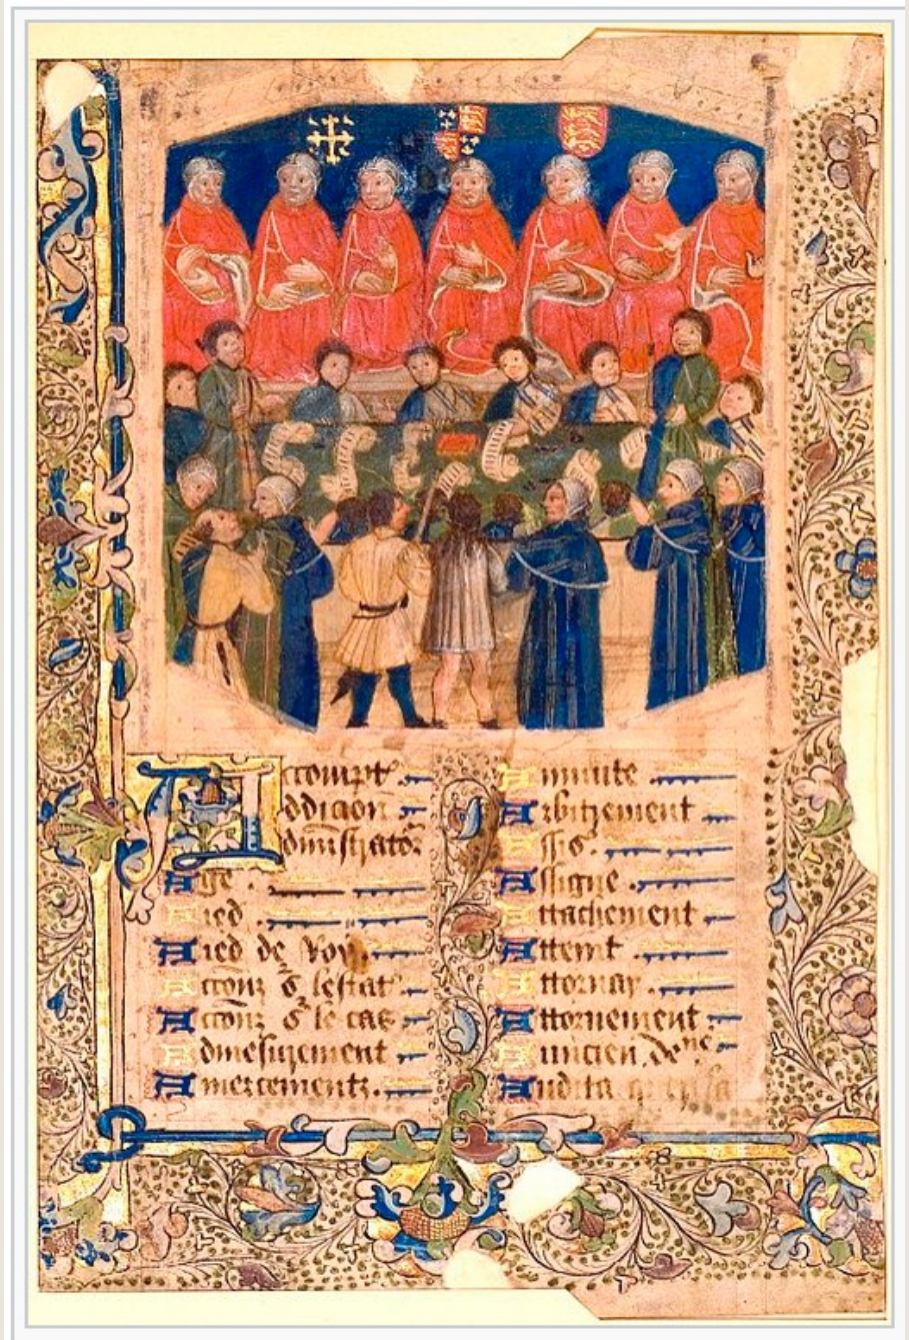 Accompt
Addicion
Administrator
Age
Aied
Aied de Roy
Accōnz s̃ lestat
Accōnz s̃ le cas
Admesurement
Amercementz
Annuite
Arbitrement
Assis
Assigne
Attachement
Atteint
Attornay
Attornement
Auncien
Audita